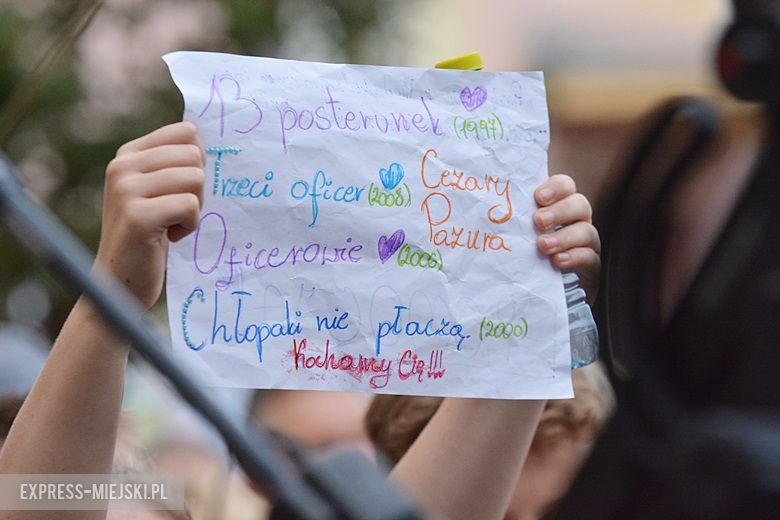 13 posterunek (1997)
Trzeci oficer (2008)
Cezary
Pazura
Oficerowie (2006)
Chłopaki nie płaczą (2000)
Kochamy Cię!!!
EXPRESS-MIEJSKI.PL